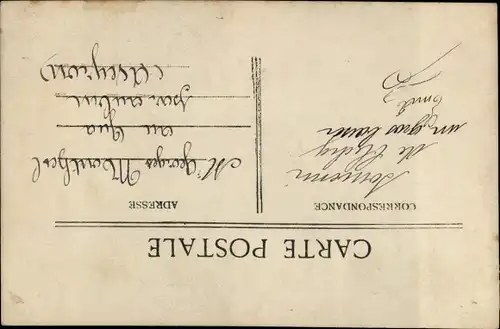 CARTE POSTALE
CORRESPONDANCE
Souvenir
de
un gros baiser
Emile
ADRESSE
M Georges
au Gua
par aubin
(Aveyron)